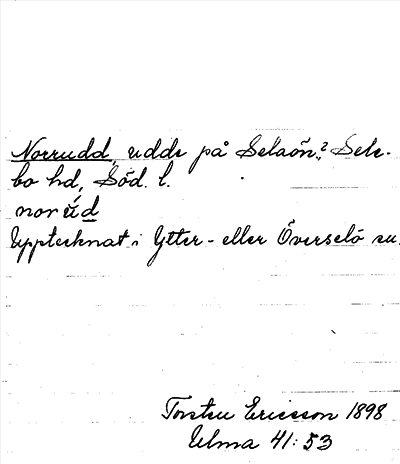 Norrudd, udde på Selaön?, Sele-
bo hd, Söd. l.
norŭ́d
Upptecknat i Ytter- eller Överselö sn.
Torsten Ericsson 1898
Ulma 41:53